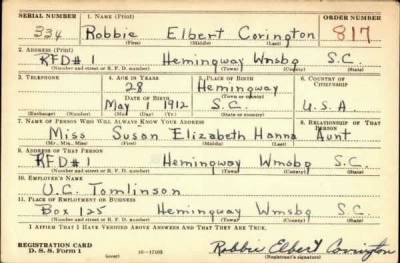 SERIAL NUMBER 1. NAME (Print) ORDER NUMBER
334 Robbie Elbert Corington 817
(First) (Middle) (Last)
2. ADDRESS (Print)
RFD#1 Hemingway Wmsbg S.C.
(Number and street or R. F. D. number) (Town) (County) (State)
3. TELEPHONE 4. AGE IN YEARS 5. PLACE OF BIRTH 6. COUNTRY OF CITIZENSHIP
28 Hemingway
DATE OF BIRTH (Town or county)
May 1 1912 S.C. U.S.A
(Exchange) (Number) (Mo.) (Day) (Yr.) (State or country)
7. NAME OF PERSON WHO WILL ALWAYS KNOW YOUR ADDRESS 8. RELATIONSHIP OF THAT PERSON
Miss Susan Elizabeth Hanna Aunt
(Mr., Mrs., Miss) (First) (Middle) (Last)
9. ADDRESS OF THAT PERSON
RFD#1 Hemingway Wmsbg S.C.
(Number and street or R. F. D. number) (Town) (County) (State)
10. EMPLOYER'S NAME
U.G. Tomlinson
11. PLACE OF EMPLOYMENT OR BUSINESS
Box 125 Hemingway Wmsbg S.C.
(Number and street or R. F. D. number) (Town) (County) (State)
I AFFIRM THAT I HAVE VERIFIED ABOVE ANSWERS AND THAT THEY ARE TRUE.
REGISTRATION CARD
D. S. S. Form 1 (over) 16—17105 Robbie Elbert Corington
(Registrant's signature)